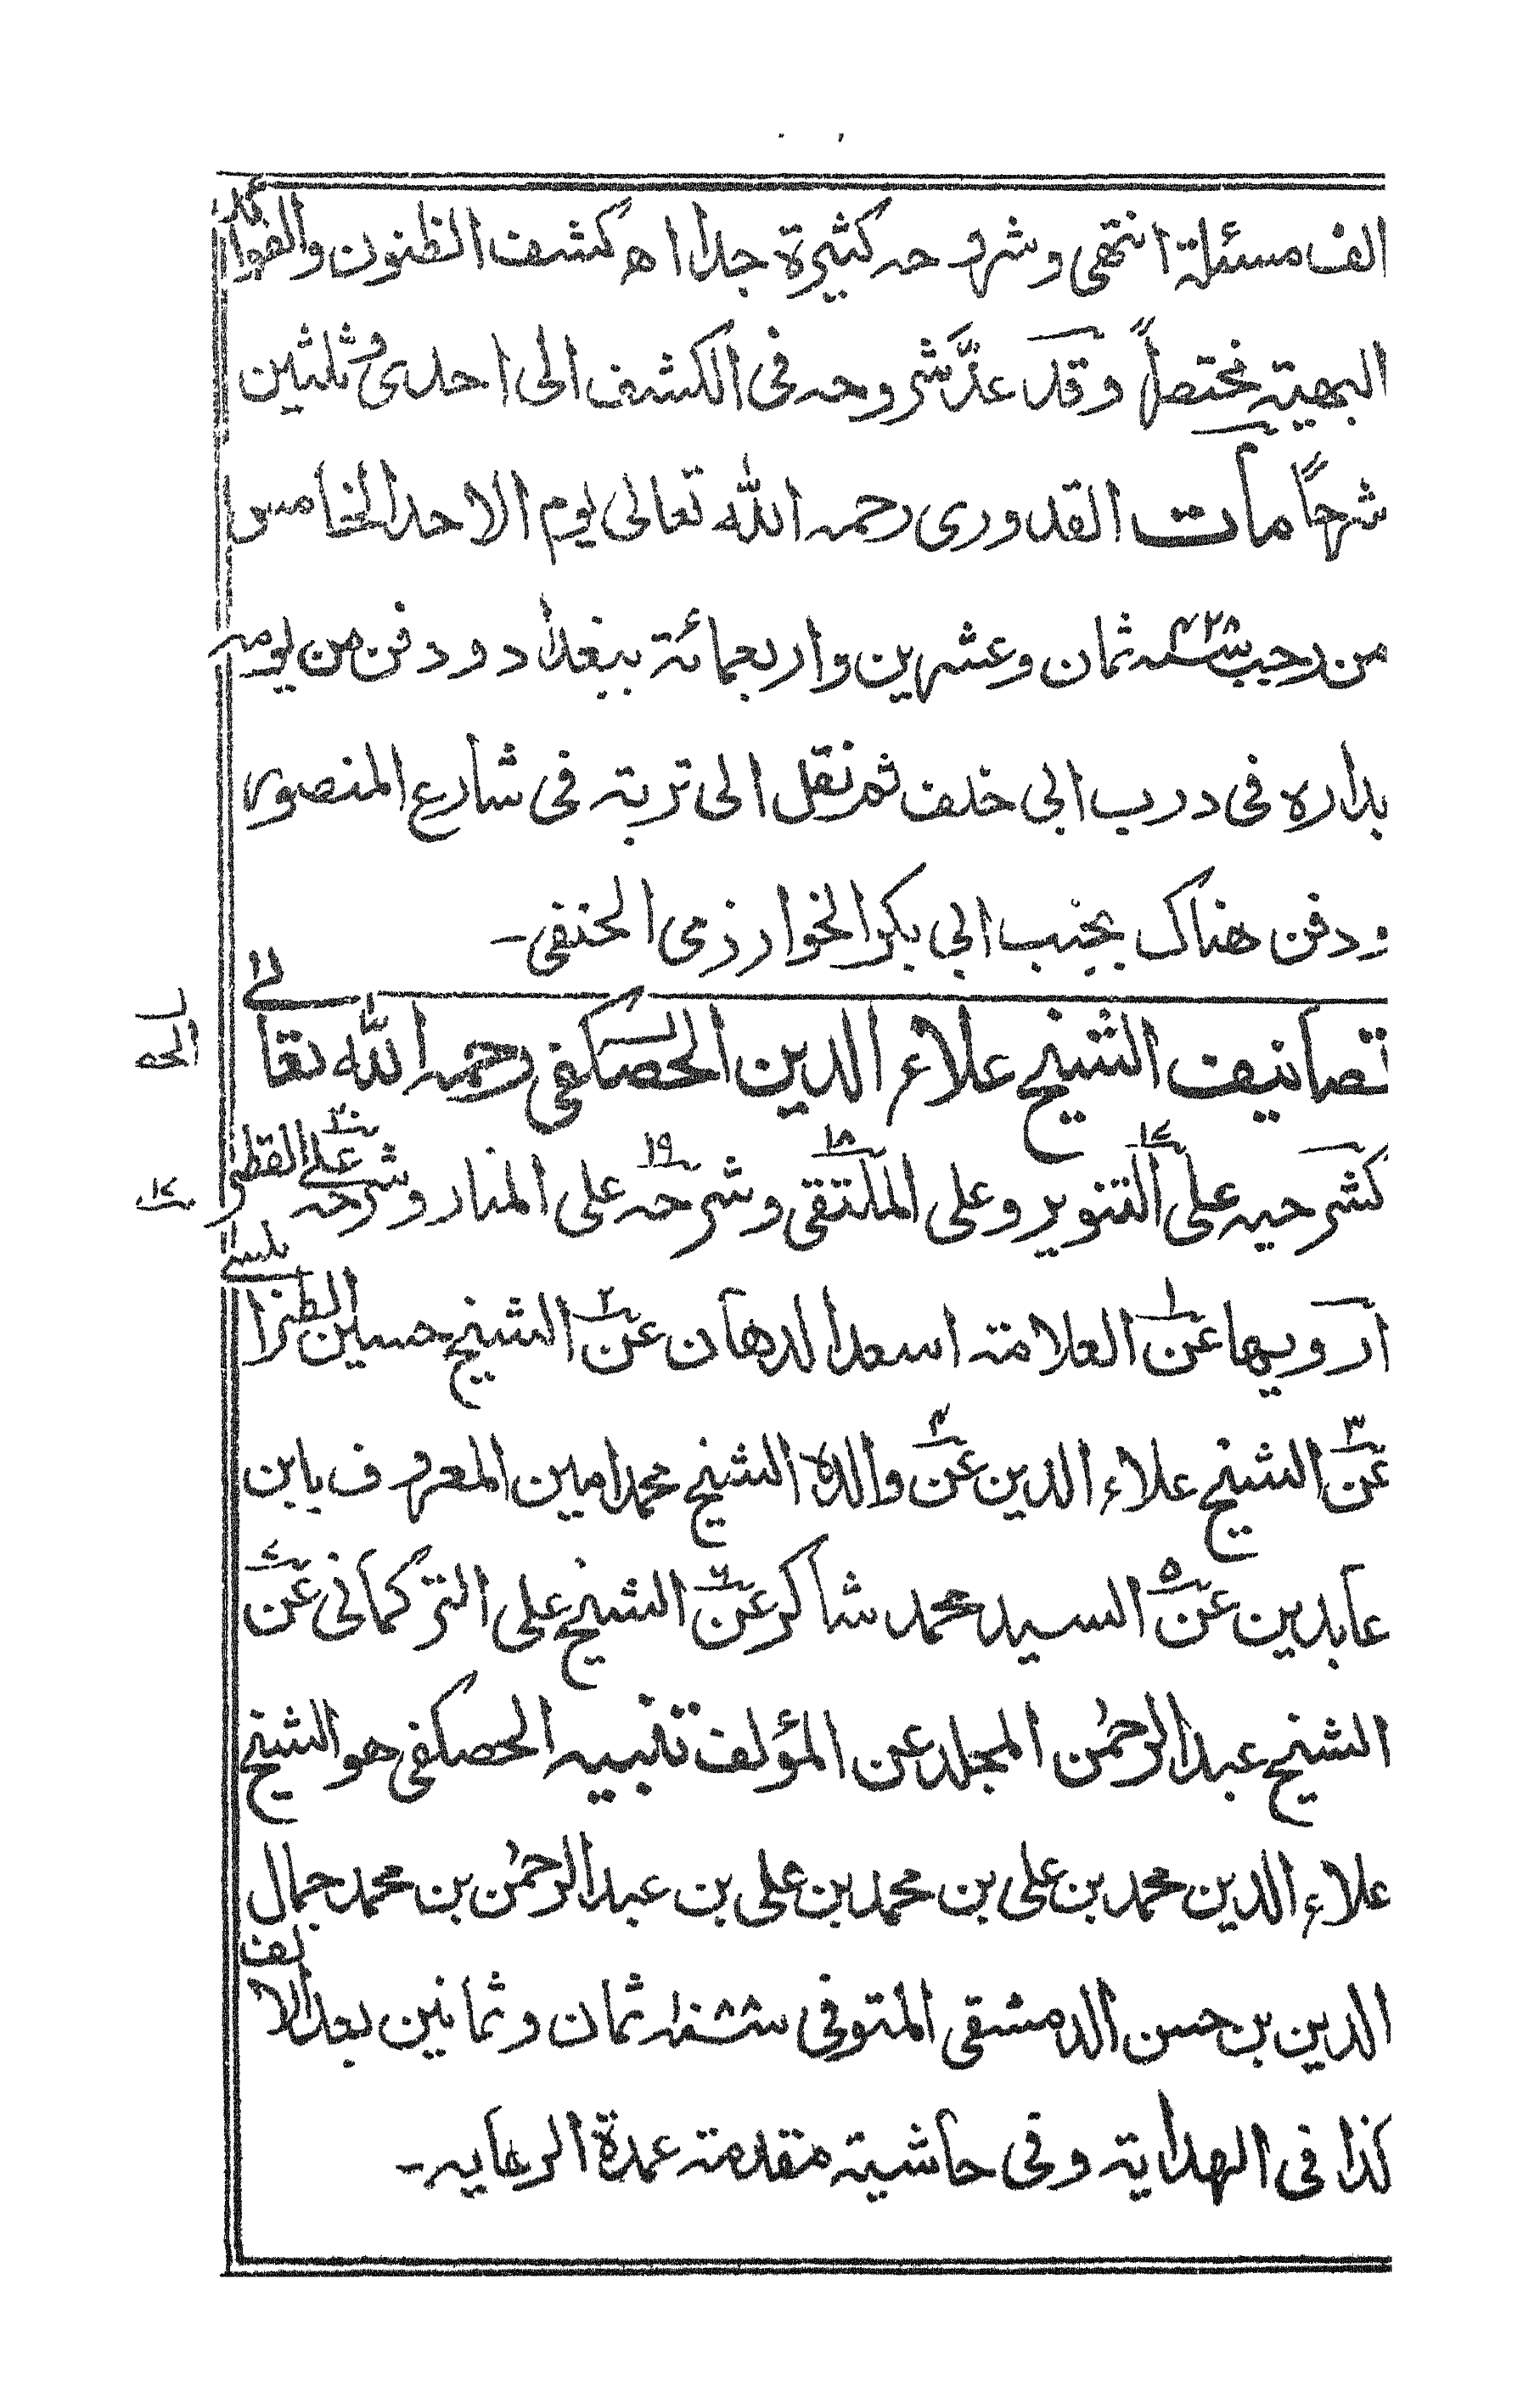 الف مسئلة انتهى وشروحه كثيرة جدا اھ كشف الظنون والفوائد
البهية مختصلً وقد عدّ شروحه فى الكشف الى احدى وثلثين
شرحًا مات القدورى رحمه الله تعالى يوم الاحد الخامس
من رجب سنه ۴۲۸ ثمان وعشرين واربعمائة ببغداد ودفن من يومه
بداره فى درب ابى خلف ثم نقل الى تربته فى شارع المنصور
ودفن هناك بجنب ابى بكر الخوارزمى الحنفى۔
تصانيف الشيخ علاء الدين الحصكفى رحمه الله تعالے
كشرحيه على ۱۷ التنوير وعلى ۱۸ الملتقى وشرحه ۱۹ على المنار وشرحه ۲۰ علے القطر
ارويها عن ۱ العلامة اسعد الدهان عن ۲ الشيخ حسين الطرابلسے
عن ۳ الشيخ علاء الدين عن ۴ والده الشيخ محمد امين المعروف بابن
عابدين عن ۵ السيد محمد شاكر عن ۶ الشيخ على التركمانى عن ۷
الشيخ عبد الرحمٰن المجلد عن المؤلف تنبيه الحصكفى هو الشيخ
علاء الدين محمد بن على بن محمد بن على بن عبد الرحمٰن بن محمد جمال
الدين بن حسن الدمشقى المتوفى سنه ۸۸ ثمان وثمانين بعد الالف
كذا فى الهداية وفى حاشية مقدمة عمدة الرعايه۔